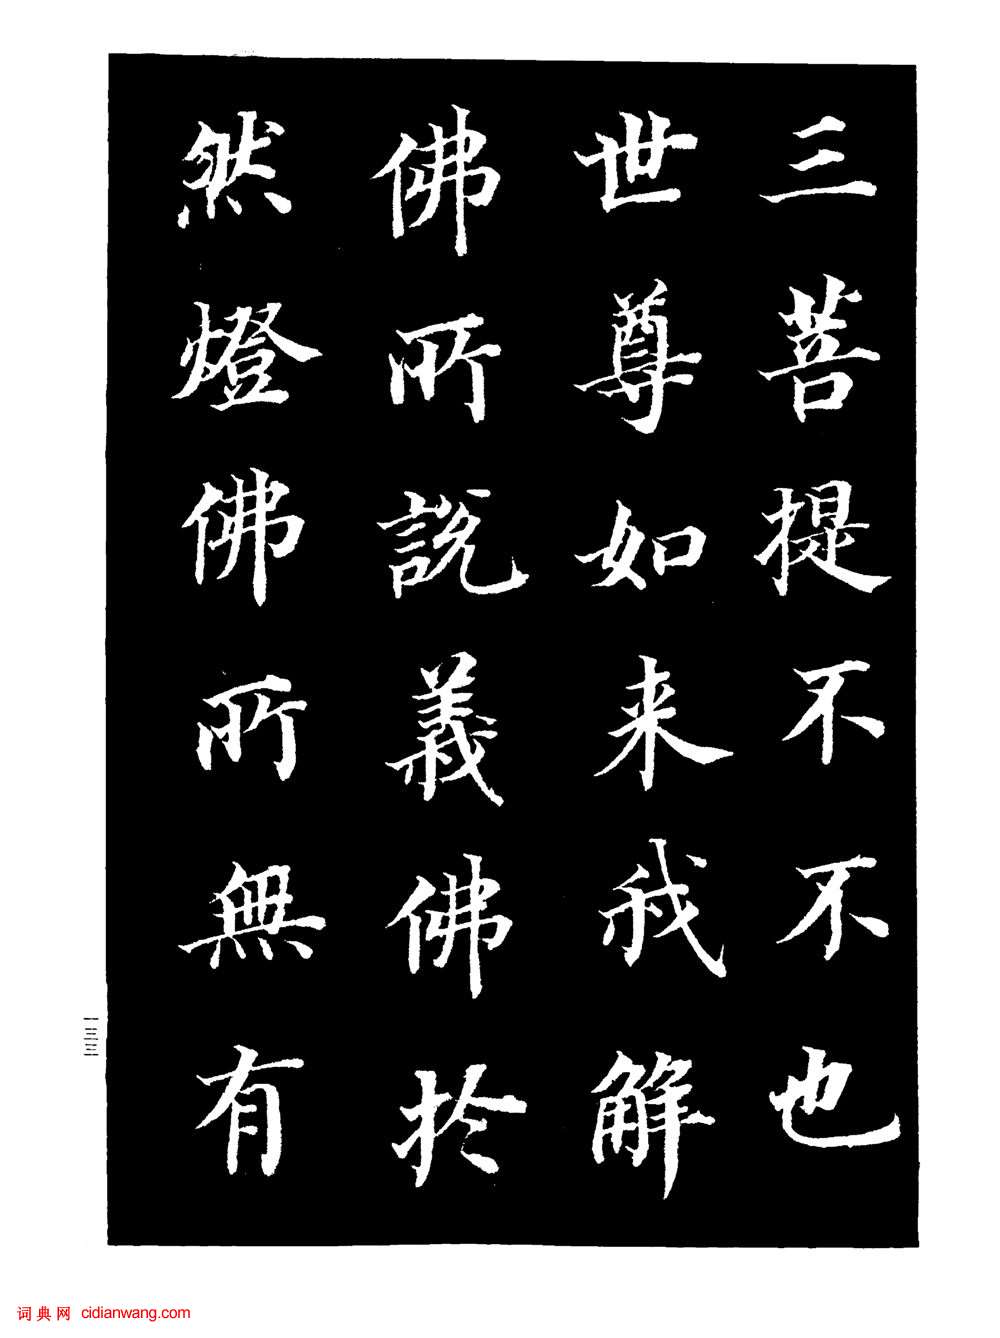 三菩提不不也
世尊如来我解
佛所說義佛於
然燈佛所無有
一三三
词典网 cidianwang.com